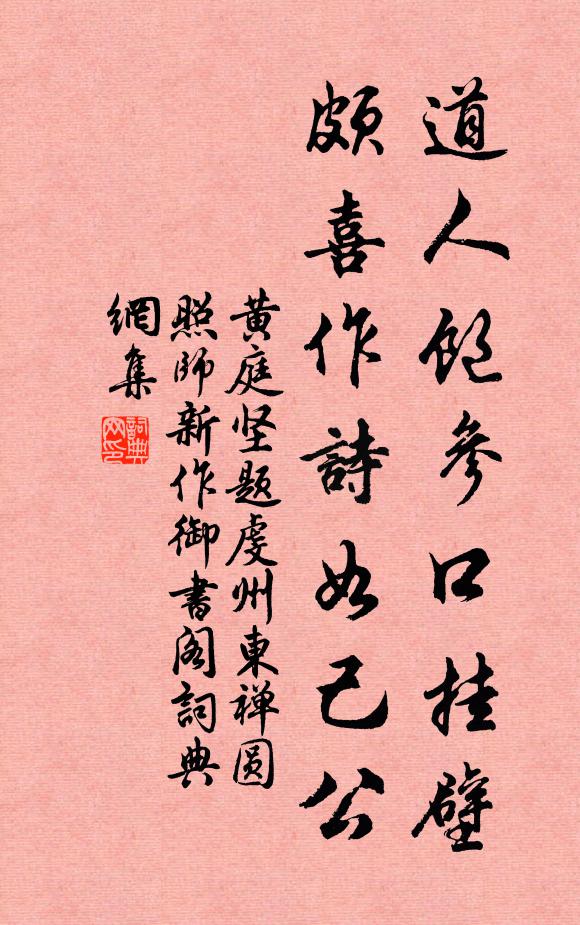 道人飽參口挂壁
頗喜作詩如己公
黄庭坚题虔州東禅圆
照師新作御書阁詞典
網集
詞典
网印